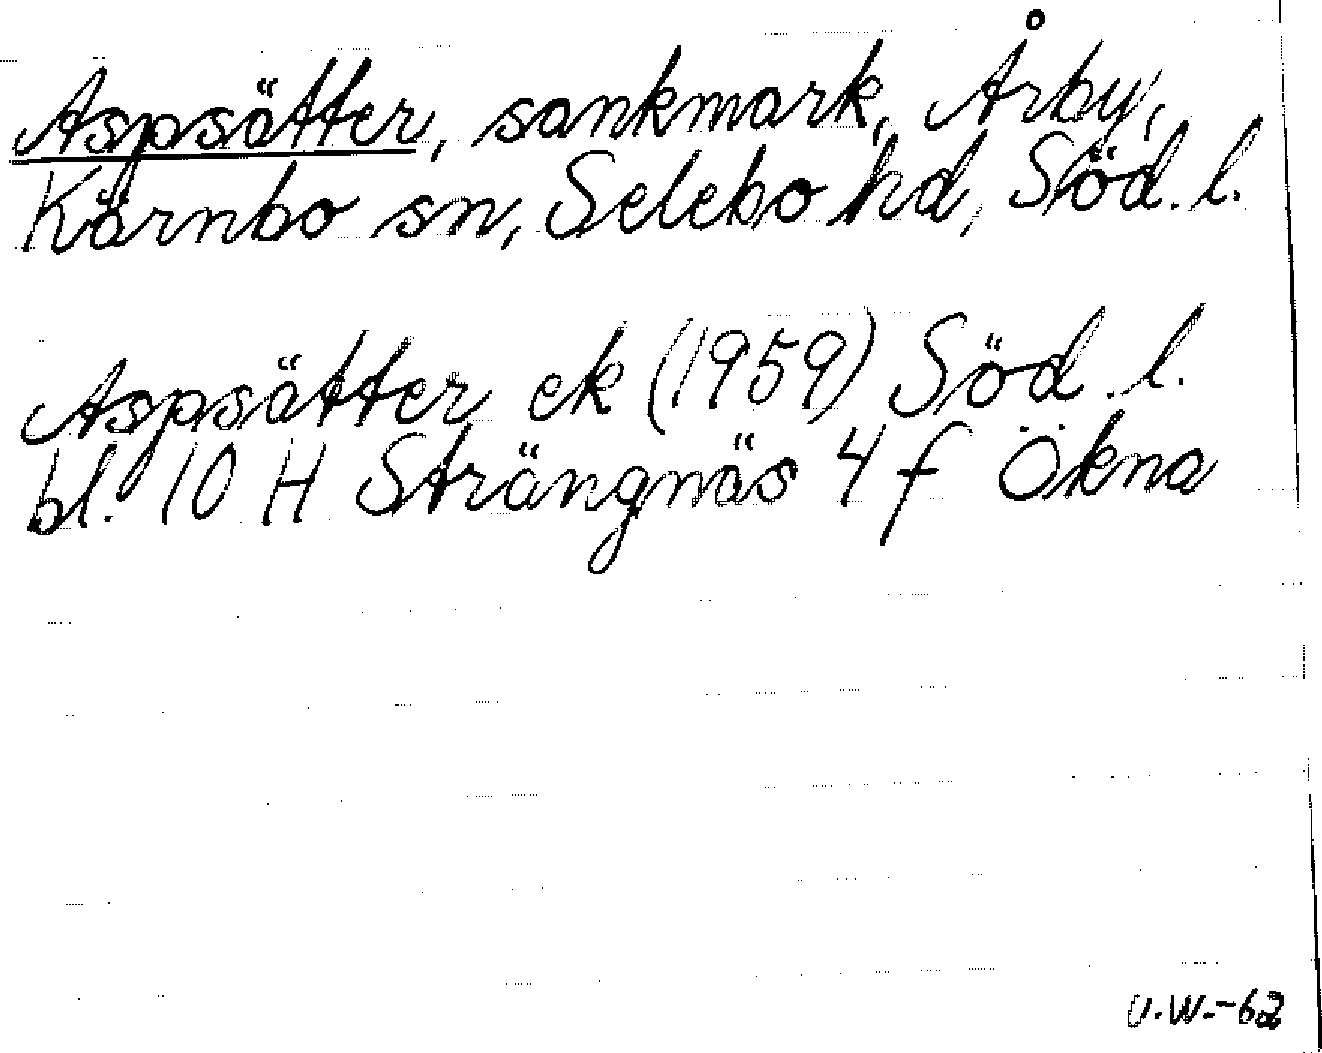 Aspsätter, sankmark, Årby,
Kärnbo sn, Selebo hd, Söd. l.
Aspsätter ek (1959) Söd. l.
bl. 10 H Strängnäs 4 f Ökna
U.W.-62